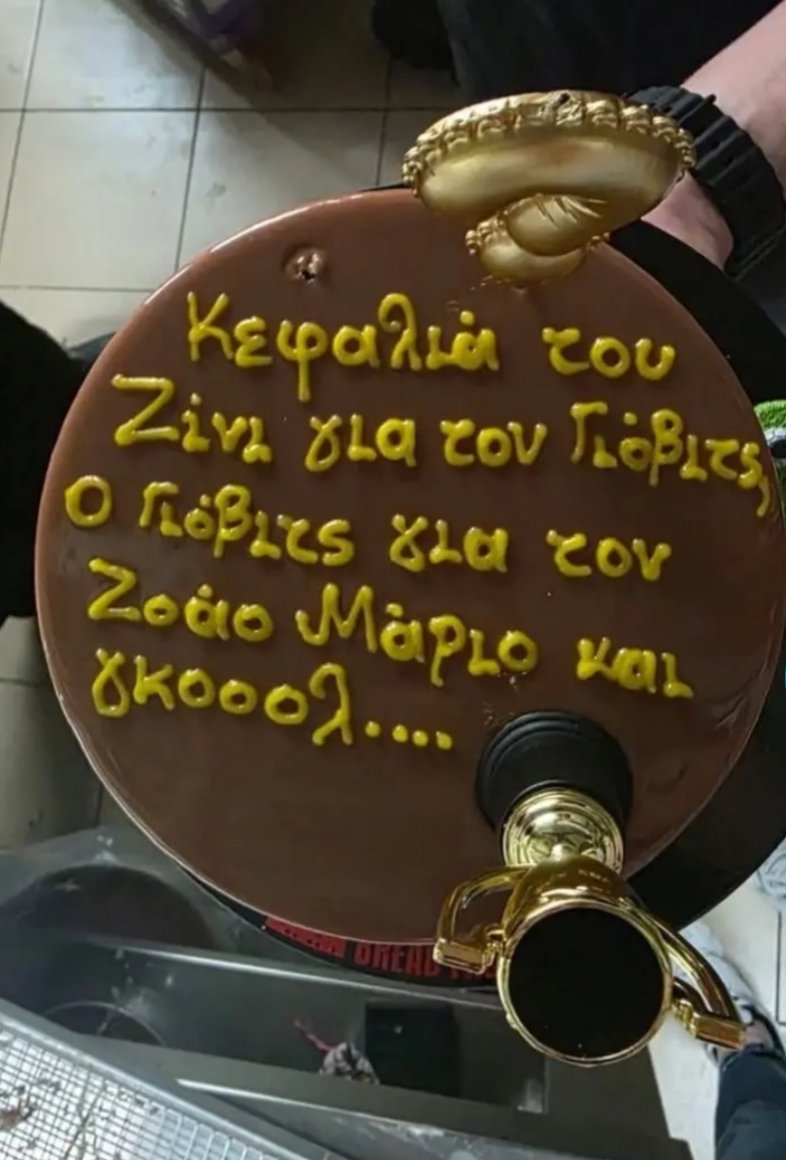 Κεφαλιά του
Ζίνι για τον Γιόβιτς,
Ο Γιόβιτς για τον
Ζοάο Μάριο και
γκοοολ....
BREAD